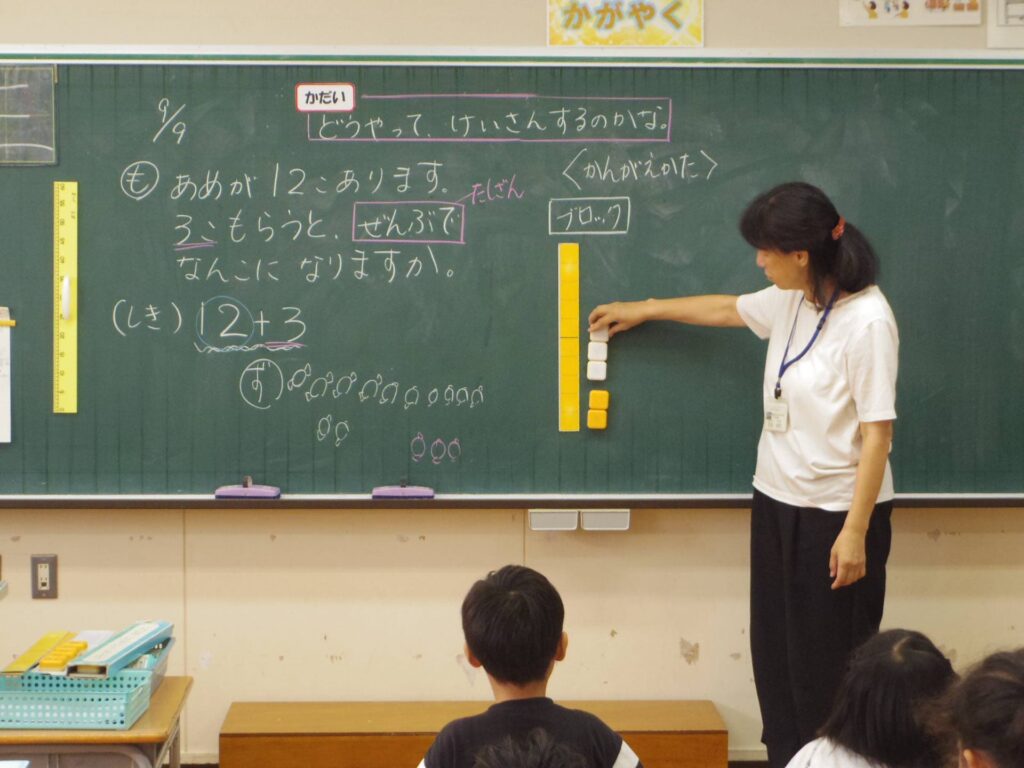 かがやく
9/9
かだい
どうやって、けいさんするのかな。
も あめが12こあります。
3こもらうと、ぜんぶで
たしざん
なんこになりますか。
(しき) 12+3
ず
〈かんがえかた〉
ブロック